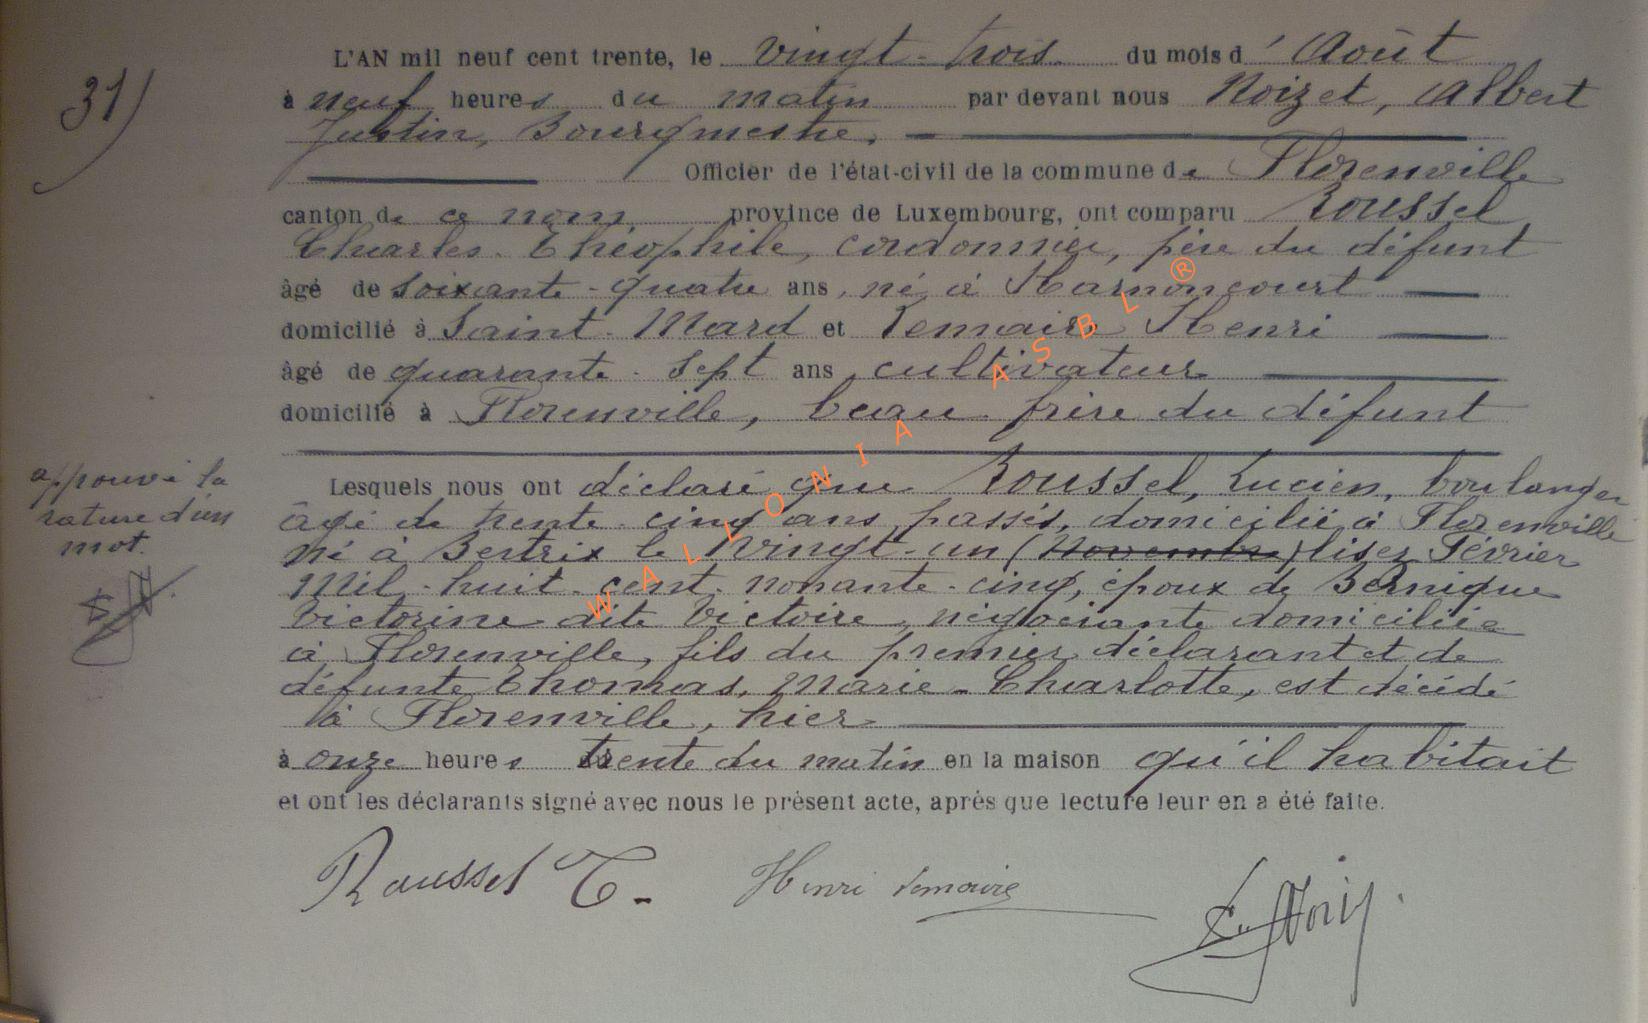 31)
L'AN mil neuf cent trente, le vingt-trois du mois d'Août
à neuf heures du matin par devant nous Noizet, Albert
Justin, Bourgmestre,
Officier de l'état-civil de la commune de Florenville
canton de ce nom province de Luxembourg, ont comparu Roussel
Charles-Théophile, cordonnier, père du défunt
âgé de soixante-quatre ans, né à Harnoncourt
domicilié à Saint-Mard et Lemaire Henri
âgé de quarante-sept ans, cultivateur
domicilié à Florenville, beau-frère du défunt
Lesquels nous ont déclaré que Roussel, Lucien, boulanger
âgé de trente-cinq ans passés, domicilié à Florenville
né à Bertrix le vingt-un (Novembre) lisez Février
Mil-huit-cent-nonante-cinq, époux de Bernique
Victorine dite Victoire, négociante domiciliée
à Florenville, fils du premier déclarant et de
défunte Thomas, Marie-Charlotte, est décédé
à Florenville, hier
à onze heures trente du matin en la maison qu'il habitait
et ont les déclarants signé avec nous le présent acte, après que lecture leur en a été faite.
approuvé la
rature d'un
mot.
Roussel T. Henri Lemaire
WALLONIA ASBL ®